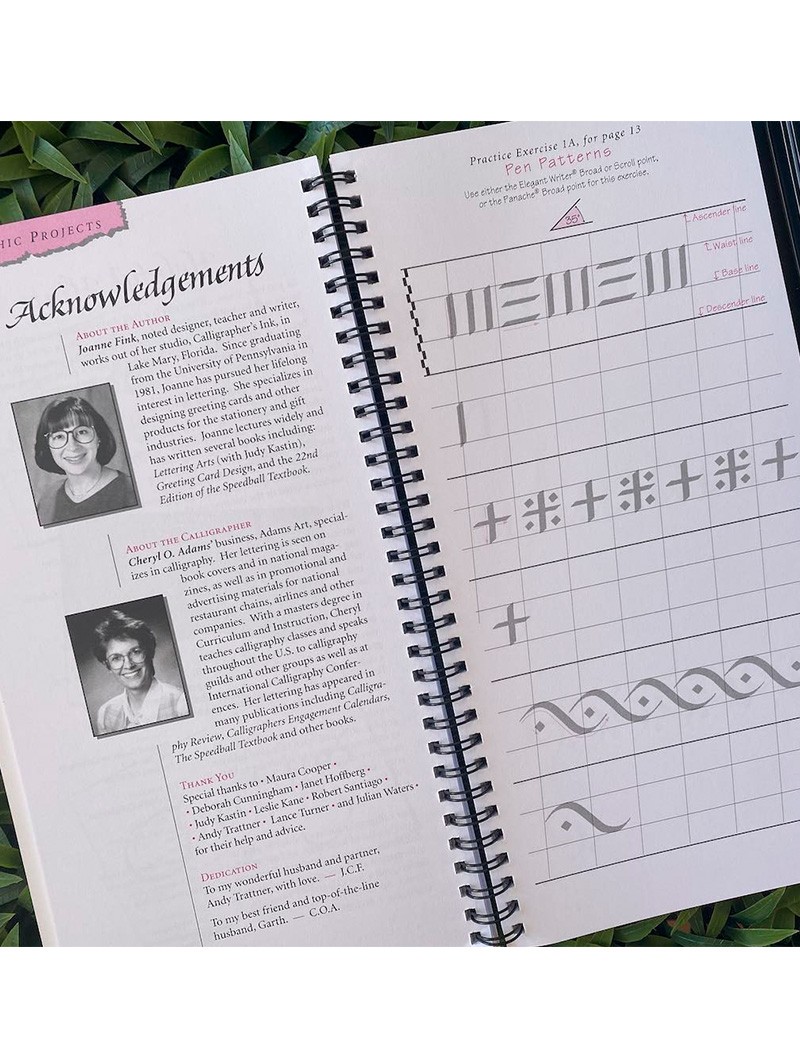 HIC PROJECTS
Acknowledgements
ABOUT THE AUTHOR
Joanne Fink, noted designer, teacher and writer,
works out of her studio, Calligrapher's Ink, in
Lake Mary, Florida. Since graduating
from the University of Pennsylvania in
1981, Joanne has pursued her lifelong
interest in lettering. She specializes in
designing greeting cards and other
products for the stationery and gift
industries. Joanne lectures widely and
has written several books including:
Lettering Arts (with Judy Kastin),
Greeting Card Design, and the 22nd
Edition of the Speedball Textbook.
ABOUT THE CALLIGRAPHER
Cheryl O. Adams' business, Adams Art, special-
izes in calligraphy. Her lettering is seen on
book covers and in national maga-
zines, as well as in promotional and
advertising materials for national
restaurant chains, airlines and other
companies. With a masters degree in
Curriculum and Instruction, Cheryl
teaches calligraphy classes and speaks
throughout the U.S. to calligraphy
guilds and other groups as well as at
International Calligraphy Confer-
ences. Her lettering has appeared in
many publications including Calligra-
phy Review, Calligraphers Engagement Calendars,
The Speedball Textbook and other books.
THANK YOU
Special thanks to • Maura Cooper •
• Deborah Cunningham • Janet Hoffberg •
• Judy Kastin • Leslie Kane • Robert Santiago •
• Andy Trattner • Lance Turner • and Julian Waters •
for their help and advice.
DEDICATION
To my wonderful husband and partner,
Andy Trattner, with love. — J.C.F.
To my best friend and top-of-the-line
husband, Garth. — C.O.A.
Practice Exercise 1A, for page 13
Pen Patterns
Use either the Elegant Writer® Broad or Scroll point,
or the Panache® Broad point for this exercise.
35°
Ascender line
Waist line
Base line
Descender line